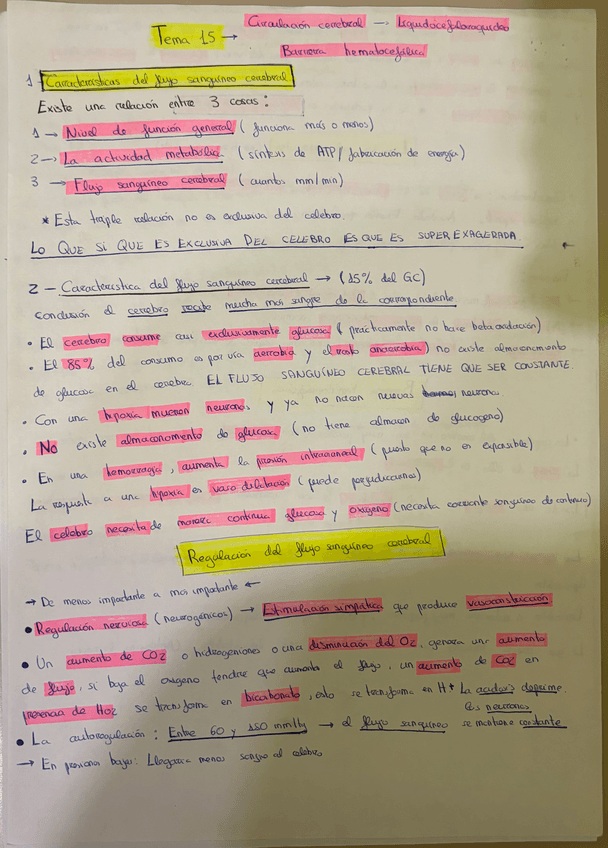 Tema 15 → Circulación cerebral → Liquidócefaloraquídeo
Barrera hematocefálica
1 - Características del flujo sanguíneo cerebral
Existe una relación entre 3 cosas:
1 → Nivel de función general (funciona más o menos)
2 → La actividad metabólica (síntesis de ATP / fabricación de energía)
3 → Flujo sanguíneo cerebral (cuantos mm/min)
* Esta triple relación no es exclusiva del celebro.
LO QUE SI QUE ES EXCLUSIVA DEL CELEBRO ES QUE ES SUPER EXAGERADA.
2 - Característica del flujo sanguíneo cerebral → (15% del GC)
conclusión el cerebro recibe mucha mas sangre de la correspondiente
• El cerebro consume casi exclusivamente glucosa (prácticamente no hace beta oxidación)
• El 85% del consumo es por vía aerobia y el resto anaerobia) no existe almacenamiento
de glucosa en el cerebro. EL FLUJO SANGUÍNEO CEREBRAL TIENE QUE SER CONSTANTE.
• Con una hipoxia mueren neuronas y ya no nacen nuevas neuronas
• No existe almacenamiento de glucosa (no tiene almacen de glucogeno)
• En una hemorragia, aumenta la presión intracraneal (puesto que no es expansible)
La respuesta a una hipoxia es vasodilatación (puede perjudicarnos)
El celebro necesita de manera continua glucosa y oxigeno (necesita corriente sanguineo de continuo)
Regulación del flujo sanguíneo cerebral
→ De menos importante a mas importante ←
• Regulación nerviosa (neurogénicos) → Estimulación simpática que produce vasoconstricción
• Un aumento de CO2 o hidrogeniones o una disminución del O2, genera un aumento
de flujo, si baja el oxigeno tendré que aumentar el flujo, un aumento de CO2 en
presencia de H02 se transforma en bicarbonato, esto se transforma en H+ La acidosis deprime
las neuronas
• La autorregulación: Entre 60 y 150 mmHg → el flujo sanguíneo se mantiene constante
→ En presiones bajas: Llegaría menos sangre al celebro